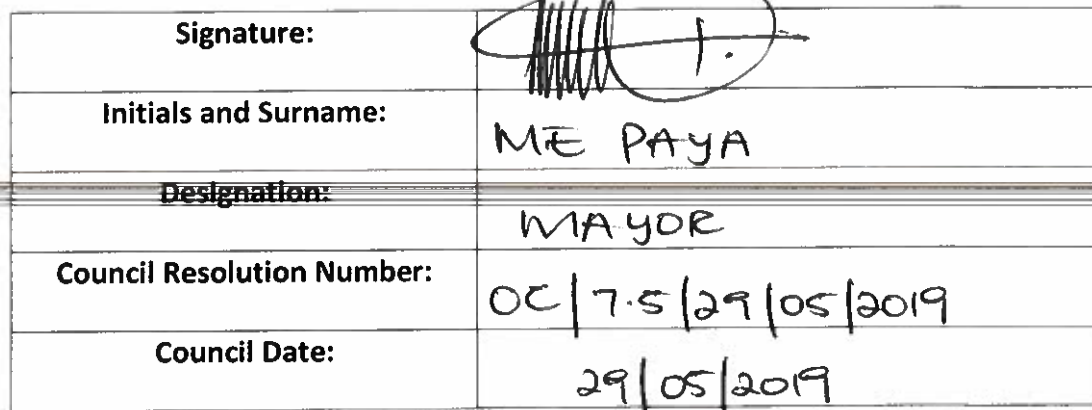 Signature:
Initials and Surname: ME PAYA
Designation: MAYOR
Council Resolution Number: OC/7.5/29/05/2019
Council Date: 29/05/2019